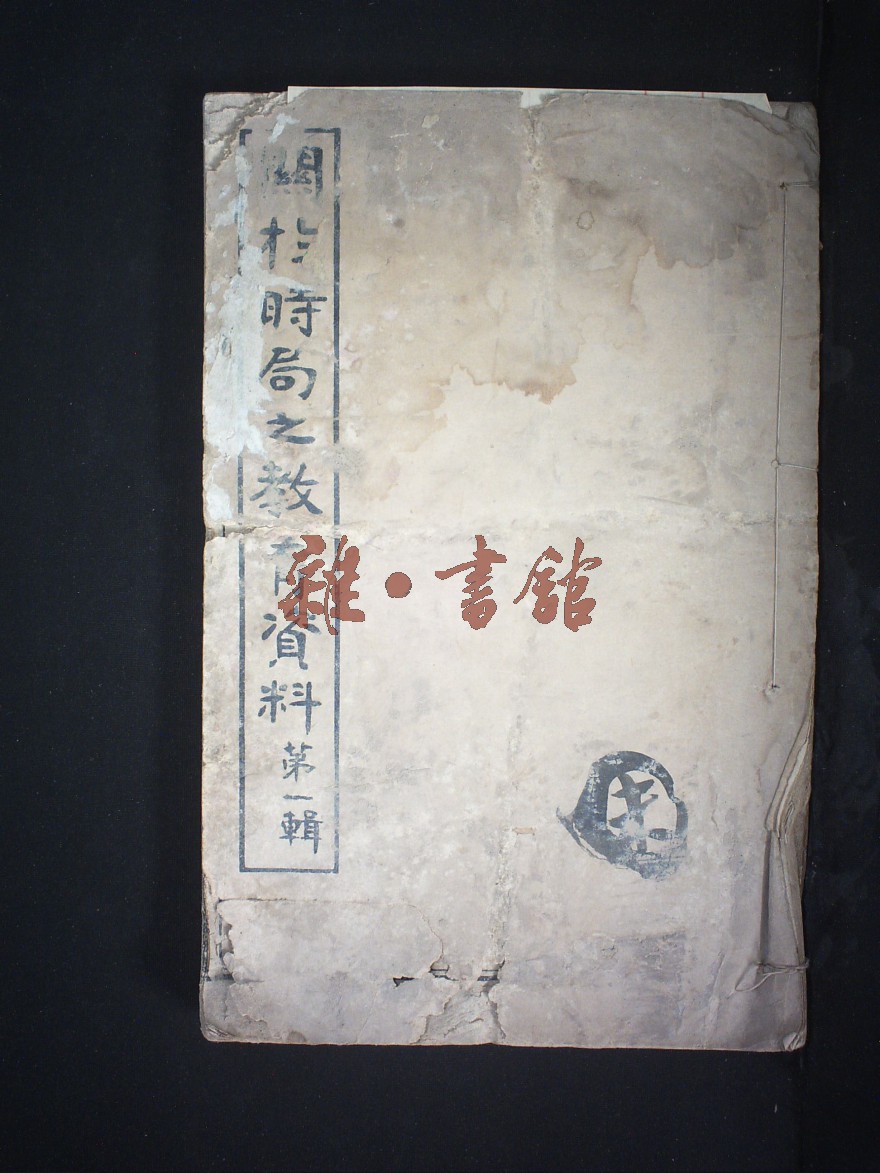 關於時局之教育資料第一輯
雜·書館